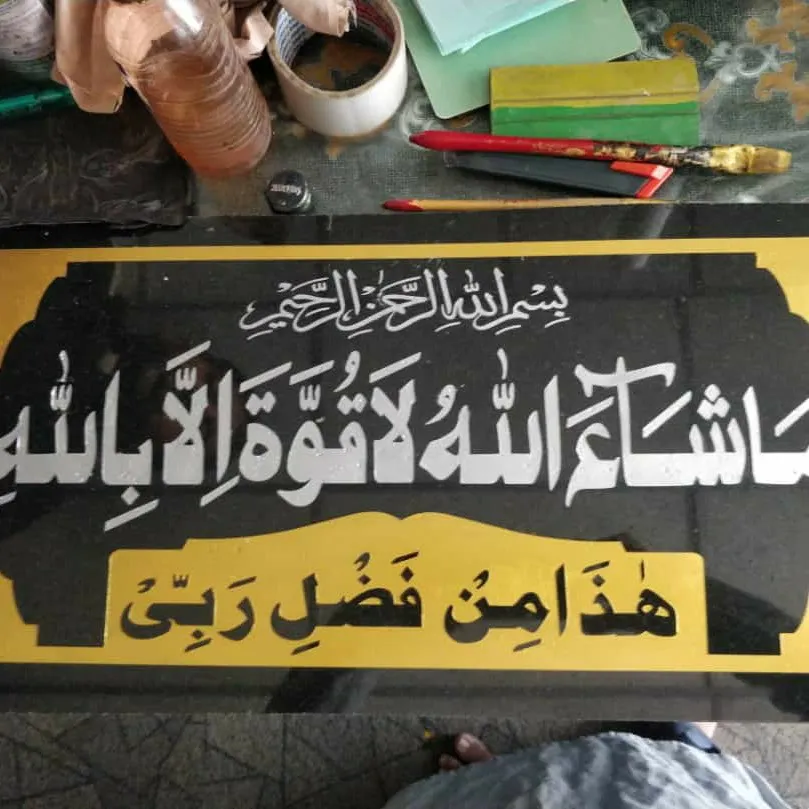 بِسْمِ اللهِ الرَّحْمٰنِ الرَّحِيْمِ
مَاشَآءَ اللهُ لَا قُوَّةَ اِلَّا بِاللهِ
هٰذَا مِنْ فَضْلِ رَبِّیْ